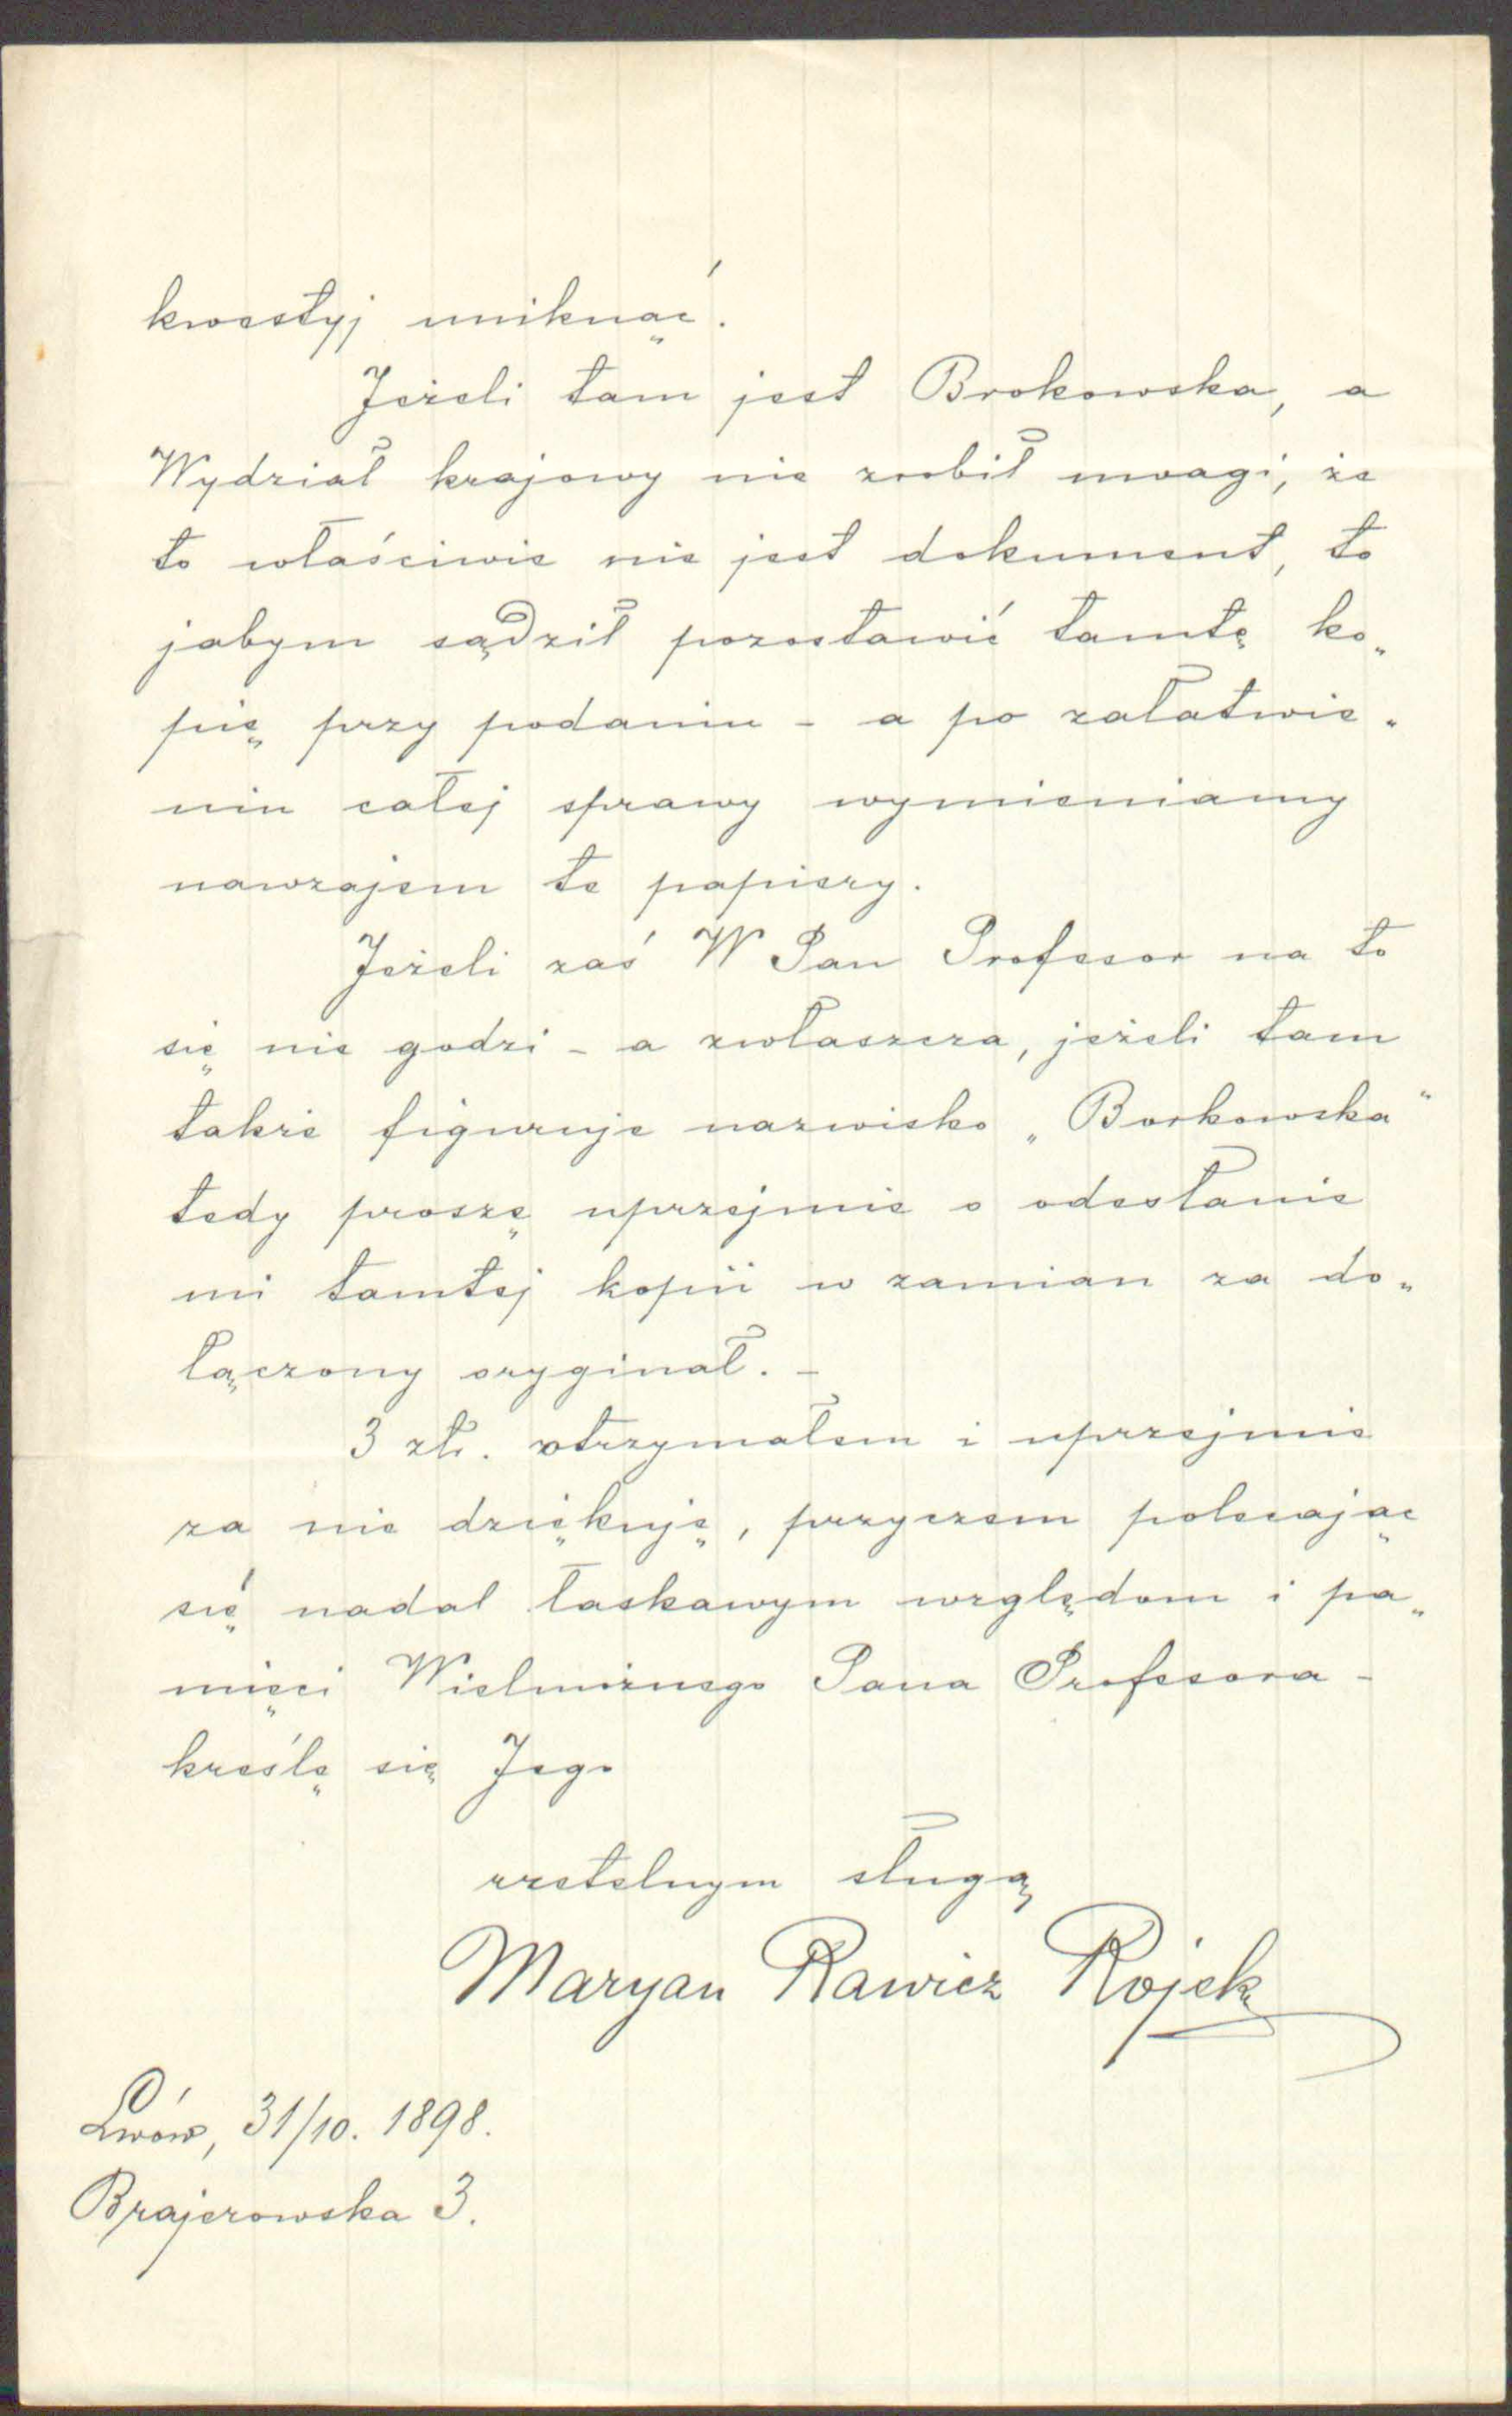 kwestyj uniknąć.
Jeżeli tam jest Brokowska, a
Wydział krajowy nie zrobił uwagi, że
to właściwie nie jest dokument, to
jabym sądził pozostawić tamtę ko„
pię przy podaniu - a po załatwie„
niu całej sprawy wymieniamy
nawzajem te papiery.
Jeżeli zaś W Pan Profesor na to
się nie godzi - a zwłaszcza, jeżeli tam
także figuruje nazwisko „Borkowska"
tedy proszę uprzejmie o odesłanie
mi tamtej kopii w zamian za do„
łączony oryginał. -
3 złr. otrzymałem i uprzejmie
za nie dziękuję, przyczem polecając
się nadal łaskawym względom i pa„
mięci Wielmożnego Pana Profesora -
kreślę się Jego
rzetelnym sługą
Maryan Rawicz Rojek
Lwów, 31/10. 1898.
Brajerowska 3.